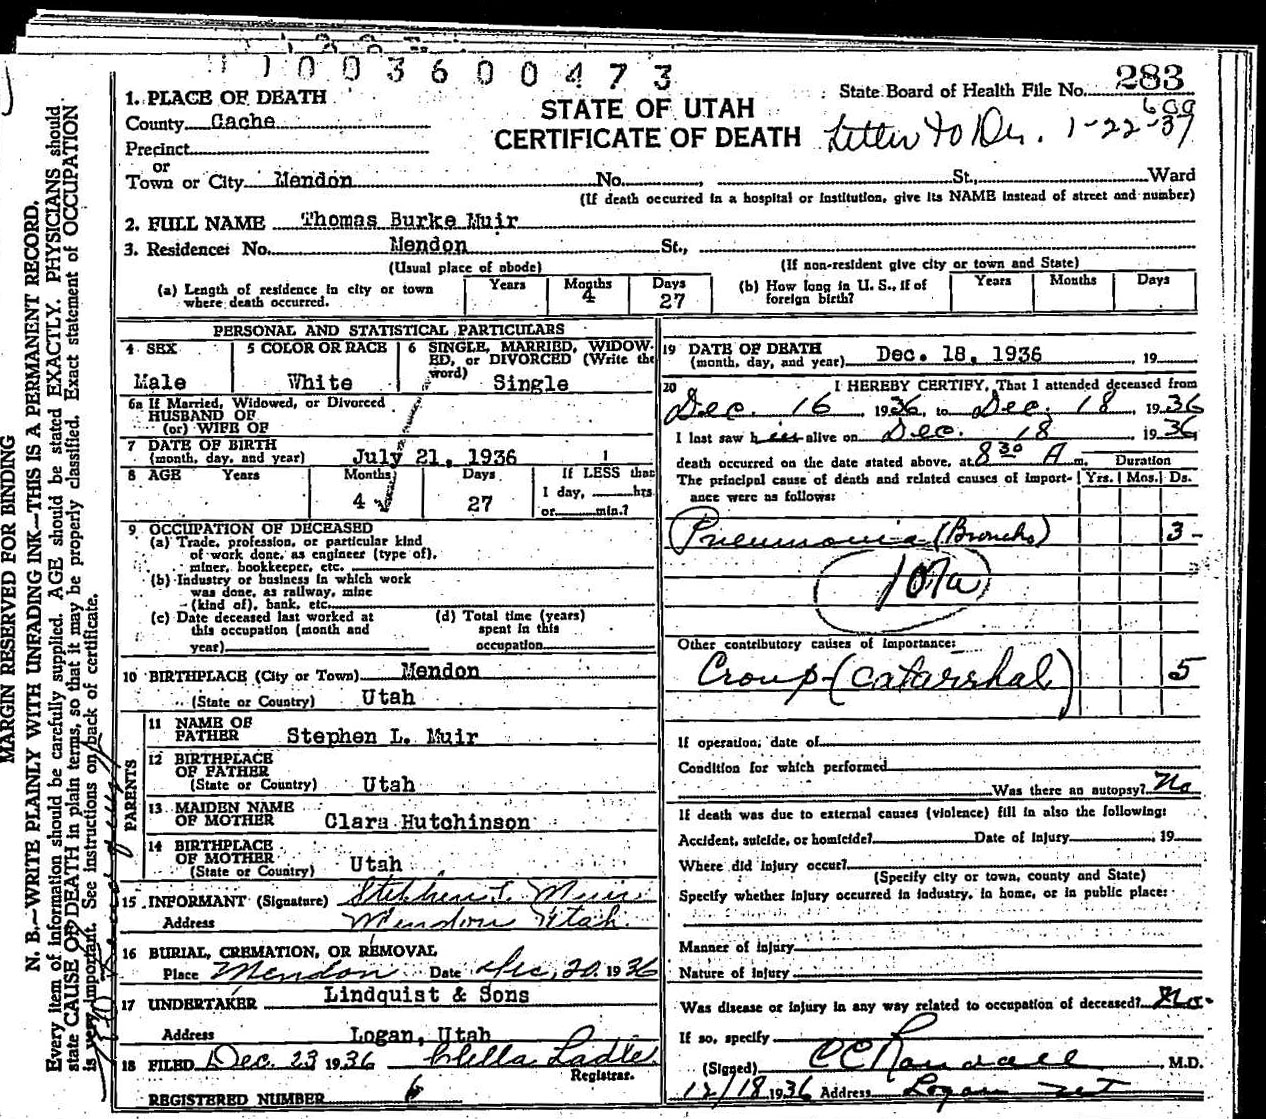 1 1 0 0 3 6 0 0 4 7 3
State Board of Health File No. 283
609
STATE OF UTAH
CERTIFICATE OF DEATH
Letter to Dr. 1-22-37
1. PLACE OF DEATH
County Cache
Precinct
or
Town or City Mendon No. , St., Ward
(If death occurred in a hospital or institution, give its NAME instead of street and number)
2. FULL NAME Thomas Burke Muir
3. Residence: No. Mendon St.,
(Usual place of abode) (If non-resident give city or town and State)
(a) Length of residence in city or town where death occurred. Years Months 4 Days 27
(b) How long in U. S., if of foreign birth? Years Months Days
PERSONAL AND STATISTICAL PARTICULARS
4 SEX Male
5 COLOR OR RACE White
6 SINGLE, MARRIED, WIDOWED, or DIVORCED (Write the word) Single
6a If Married, Widowed, or Divorced
HUSBAND OF
(or) WIFE OF
7 DATE OF BIRTH
(month, day, and year) July 21, 1936
8 AGE Years Months 4 Days 27 If LESS than
1 day, hrs
or min.?
9 OCCUPATION OF DECEASED
(a) Trade, profession, or particular kind
of work done, as engineer (type of),
miner, bookkeeper, etc.
(b) Industry or business in which work
was done, as railway, mine
(kind of), bank, etc.
(c) Date deceased last worked at
this occupation (month and
year)
(d) Total time (years)
spent in this
occupation
10 BIRTHPLACE (City or Town) Mendon
(State or Country) Utah
PARENTS
11 NAME OF
FATHER Stephen L. Muir
12 BIRTHPLACE
OF FATHER
(State or Country) Utah
13 MAIDEN NAME
OF MOTHER Clara Hutchinson
14 BIRTHPLACE
OF MOTHER
(State or Country) Utah
15 INFORMANT (Signature) Stephen L. Muir
Address Mendon Utah.
16 BURIAL, CREMATION, OR REMOVAL
Place Mendon Date Dec, 20, 1936
17 UNDERTAKER Lindquist & Sons
Address Logan, Utah
18 FILED Dec. 23 1936 Ladle
Registrar.
REGISTERED NUMBER 6
19 DATE OF DEATH
(month, day, and year) Dec. 18, 1936 , 19
20 I HEREBY CERTIFY, That I attended deceased from
Dec. 16 1936, to Dec. 18, 1936
I last saw him alive on Dec. 18 1936
death occurred on the date stated above, at 8 30 A m. Duration
The principal cause of death and related causes of importance were as follows: Yrs. Mos. Ds.
Pneumonia (Broncho) 3-
107a
Other contributory causes of importance:
Croup-(catarrhal) 5
If operation, date of
Condition for which performed
Was there an autopsy? No
If death was due to external causes (violence) fill in also the following:
Accident, suicide, or homicide? Date of injury 19
Where did injury occur?
(Specify city or town, county and State)
Specify whether injury occurred in industry, in home, or in public place:
Manner of injury
Nature of injury
Was disease or injury in any way related to occupation of deceased? No.
If so, specify
(Signed) CC Randall , M.D.
12/18 1936 Address Logan
MARGIN RESERVED FOR BINDING
N. B.—WRITE PLAINLY WITH UNFADING INK—THIS IS A PERMANENT RECORD.
Every item of information should be carefully supplied. AGE should be stated EXACTLY. PHYSICIANS should
state CAUSE OF DEATH in plain terms, so that it may be properly classified. Exact statement of OCCUPATION
is very important. See instructions on back of certificate.